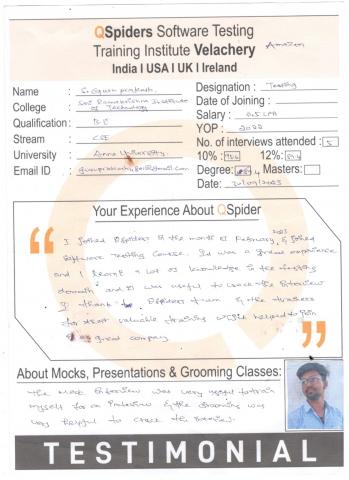 QSpiders Software Testing
Training Institute Velachery
Amazon
India I USA I UK I Ireland
Name : S. Gyan prakash
College : Sri Ramakrishna Institute of Technology
Qualification : B.E
Stream : CSE
University : Anna University
Email ID :
Designation : Testing
Date of Joining :
Salary : LPA
YOP : 2022
No. of interviews attended : 5
10% : 12% :
Degree : Masters:
Date:
Your Experience About QSpider
I Joined QSpiders in the month of February, 2023 & Joined
Software Testing Course. It was a great experience
and I learnt a lot of knowledge in the testing
domain and it was useful to crack the Interview
I thank to QSpiders team & the trainers
for their valuable training which helped to join
great company
About Mocks, Presentations & Grooming Classes:
The Mock Interview was very useful to train
myself for an Interview & the Grooming was
very helpful to crack the Interview.
TESTIMONIAL